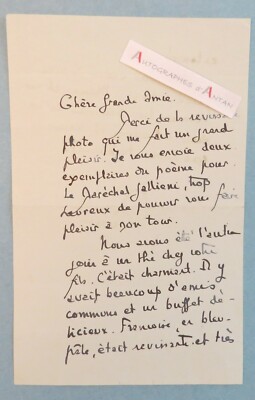 AUTOGRAPHES D'ANTAN
Chère grande Amie.
Merci de la ravissante
photo qui me fait un grand
plaisir. Je vous envoie deux
exemplaires du poème pour
le Maréchal Gallieni, trop
heureux de pouvoir vous faire
plaisir à mon tour.
Nous avons été l'autre
jour à un thé chez votre
fils. C'était charmant. Il y
avait beaucoup d'amis
communs et un buffet dé-
licieux. Françoise, en bleu-
pâle, était ravissante et très